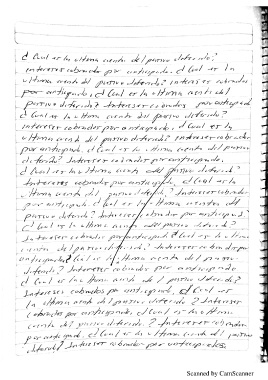 ¿Cual es la ultima cuenta del pasivo diferido?
intereses cobrados por anticipado. ¿Cual es la
ultima cuenta del pasivo diferido? intereses cobrados
por anticipado. ¿Cual es la ultima cuenta del
pasivo diferido? Intereses cobrados por anticipado
¿Cual es la ultima cuenta del pasivo diferido?
intereses cobrados por anticipado. ¿Cual es la
ultima cuenta del pasivo diferido? Intereses cobrados
por anticipado. ¿Cual es la ultima cuenta del pasivo
diferido? Intereses cobrados por anticipado.
¿Cual es la ultima cuenta del pasivo diferido?
Intereses cobrados por anticipado. ¿Cual es la
ultima cuenta del pasivo diferido? Intereses cobrados
por anticipado. ¿Cual es la ultima cuenta del
pasivo diferido? Intereses cobrados por anticipado
¿Cual es la ultima cuenta del pasivo diferido?
Intereses cobrados por anticipado. ¿Cual es la ultima
cuenta del pasivo diferido? Intereses cobrados por
anticipado. ¿Cual es la ultima cuenta del pasivo
diferido? Intereses cobrados por anticipado
¿Cual es la ultima cuenta del pasivo diferido?
Intereses cobrados por anticipado. ¿Cual es
la ultima cuenta del pasivo diferido? Intereses
cobrados por anticipado. ¿Cual es la ultima
cuenta del pasivo diferido? Intereses cobrados
por anticipado. ¿Cual es la ultima cuenta del pasivo
diferido? Intereses cobrados por anticipados
Scanned by CamScanner